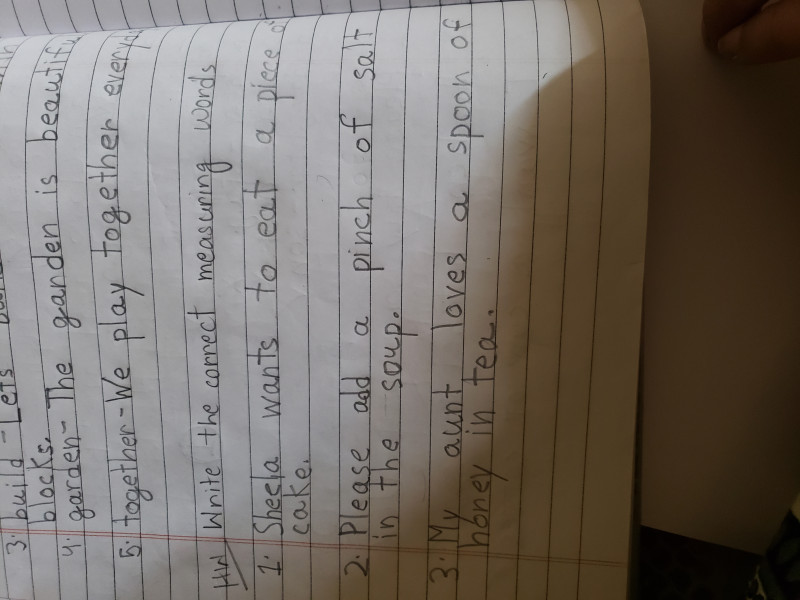 3. build - Lets
blocks.
4. garden - The garden is
5. together - We play together
HW Write the correct measuring words
1. Sheela wants to eat a piece
cake.
2. Please add a pinch of salt
in the soup.
3. My aunt loves a spoon of
honey in tea.